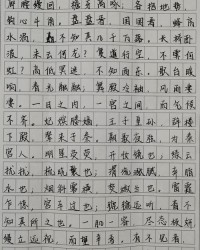 廊腰缦回,檐牙高啄,各抱地势,
钩心斗角。盘盘焉,囷囷焉,蜂房
水涡,矗不知其几千万落。长桥卧
波,未云何龙?复道行空,不霁何
虹?高低冥迷,不知西东。歌台暖
响,春光融融;舞殿冷袖,风雨凄
凄。一日之内,一宫之间,而气候
不齐。妃嫔媵嫱,王子皇孙,辞楼
下殿,辇来于秦,朝歌夜弦,为秦
宫人。明星荧荧,开妆镜也;绿云
扰扰,梳晓鬟也;渭流涨腻,弃脂
水也;烟斜雾横,焚椒兰也。雷霆
乍惊,宫车过也;辘辘远听,杳不
知其所之也。一肌一容,尽态极妍
缦立远视,而望幸焉。有不见者,